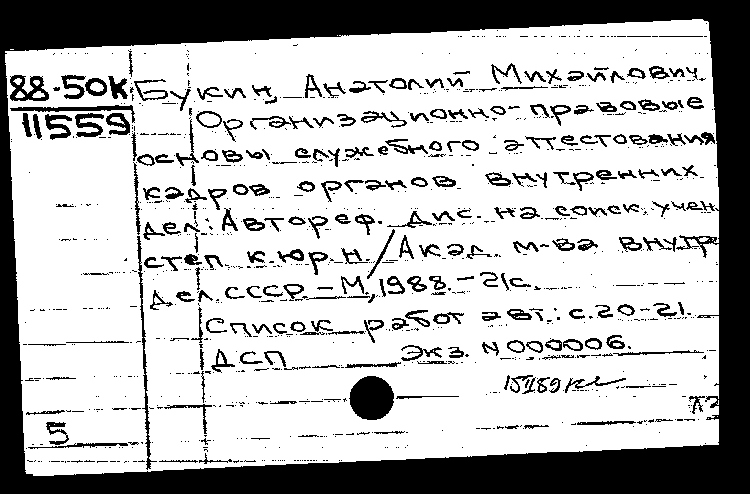 88-50к Букин, Анатолий Михайлович
11559 Организационно-правовые
основы служебного аттестования
кадров органов внутренних
дел: Автореф. дис. на соиск. учен.
степ. к.юр.н. / Акад. м-ва внутр.
дел СССР. - М., 1988. - 21с.
Список работ авт.: с.20-21.
ДСП Экз. N 000006.
5